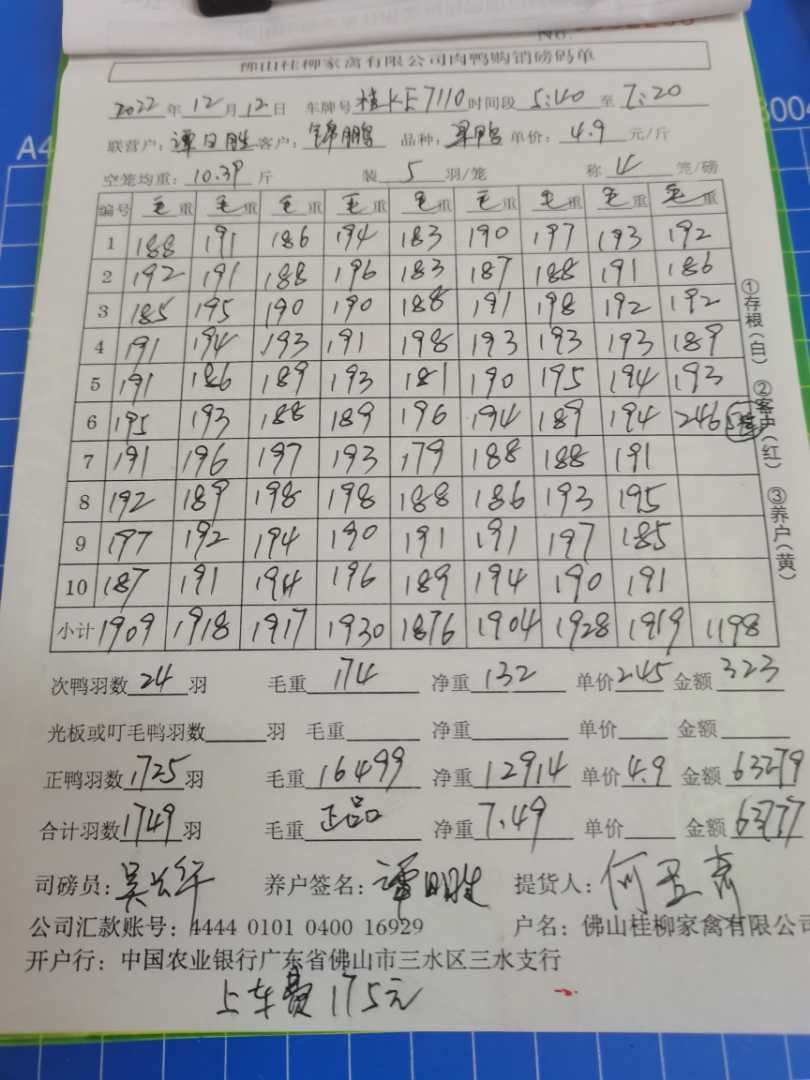 佛山桂柳家禽有限公司肉鸭购销磅码单
2022年12月12日 车牌号桂KE7110时间段5:40至7:20
联营户:谭日胜客户:锦鹏 品种: 单价:4.9元/斤
空笼均重:10.39斤 装5羽/笼 称4笼/磅
编号 毛重 毛重 毛重 毛重 毛重 毛重 毛重 毛重 毛重
1 188 191 186 194 183 190 197 193 192
2 192 191 188 196 183 187 188 191 186
3 185 195 190 190 188 191 198 192 192
4 191 194 193 191 198 193 193 193 189
5 191 186 189 193 181 190 195 194 193
6 195 193 188 189 196 194 189 194 246
7 191 196 197 193 179 188 188 191
8 192 189 198 198 188 186 193 195
9 197 192 194 190 191 191 197 185
10 187 191 194 196 189 194 190 191
小计 1909 1918 1917 1930 1876 1904 1928 1919 1198
次鸭羽数24羽 毛重174 净重132 单价2.45 金额323
光板或叮毛鸭羽数 羽 毛重 净重 单价 金额
正鸭羽数1725羽 毛重16499 净重12914 单价4.9 金额63279
合计羽数1749羽 毛重正品 净重7.49 单价 金额63777
司磅员: 养户签名:谭日胜 提货人:
公司汇款账号:4444 0101 0400 16929 户名:佛山桂柳家禽有限公司
开户行:中国农业银行广东省佛山市三水区三水支行
上车费175元
①存根(白) ②客户(红) ③养户(黄)